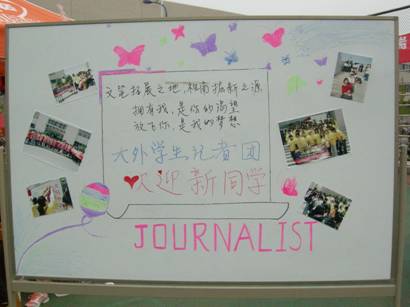 文笔拓展之地,视角拓新之源
拥有我,是你的渴望
放飞你,是我的梦想
大外学生记者团
欢迎新同学
JOURNALIST